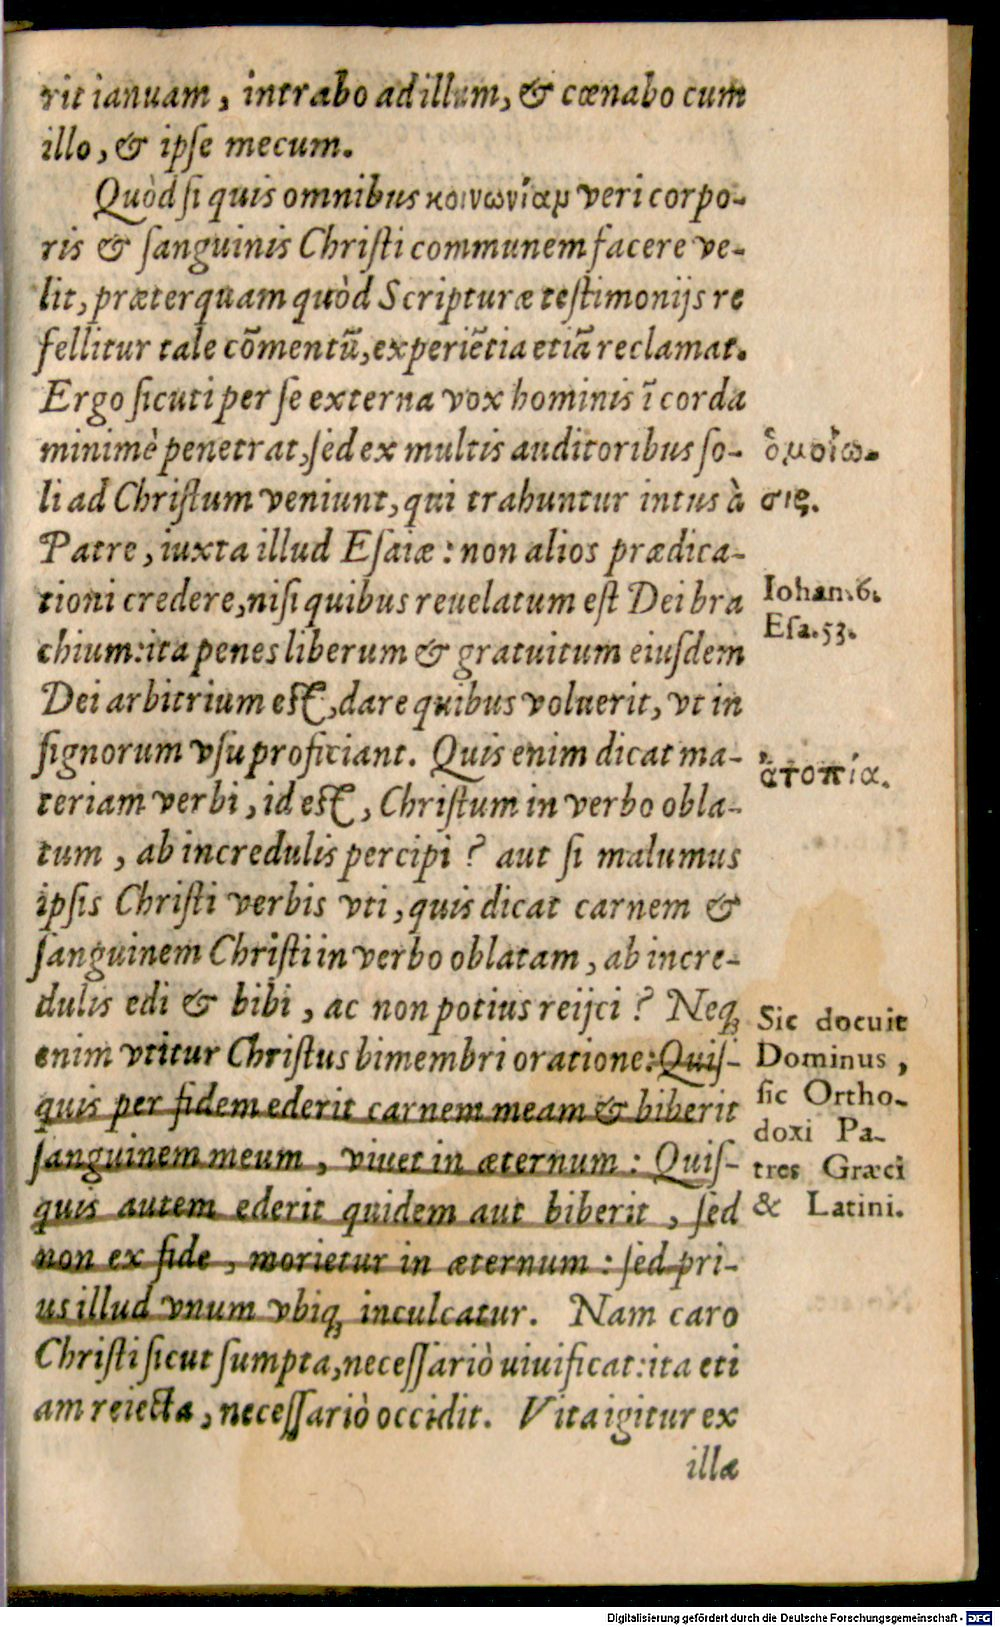 rit ianuam, intrabo ad illum, & cœnabo cum
illo, & ipſe mecum.
Quòd ſi quis omnibus κοινωνίαμ veri corpo-
ris & ſanguinis Chriſti communem facere ve-
lit, præterquam quòd Scripturæ teſtimonijs re
fellitur tale cõmentũ, experiẽtia etiã reclamat.
Ergo ſicuti per ſe externa vox hominis ĩ corda
minimè penetrat, ſed ex multis auditoribus ſo-
li ad Chriſtum veniunt, qui trahuntur intus à
Patre, iuxta illud Eſaiæ: non alios prædica-
tioni credere, niſi quibus reuelatum eſt Dei bra
chium: ita penes liberum & gratuitum eiuſdem
Dei arbitrium eſt, dare quibus voluerit, vt in
ſignorum vſu proficiant. Quis enim dicat ma-
teriam verbi, id eſt, Chriſtum in verbo obla-
tum, ab incredulis percipi? aut ſi malumus
ipſis Chriſti verbis vti, quis dicat carnem &
ſanguinem Chriſti in verbo oblatam, ab incre-
dulis edi & bibi, ac non potius reijci? Neq;
enim vtitur Chriſtus bimembri oratione: Quiſ-
quis per fidem ederit carnem meam & biberit
ſanguinem meum, viuet in æternum: Quiſ-
quis autem ederit quidem aut biberit, ſed
non ex fide, morietur in æternum: ſed pri-
us illud vnum vbiq; inculcatur. Nam caro
Chriſti ſicut ſumpta, neceſſariò uiuificat: ita eti
am reiecta, neceſſariò occidit. Vita igitur ex
illa
ὁμοίω-
σις.
Iohan.6.
Eſa.53.
ἀτοπία.
Sic docuit
Dominus,
ſic Ortho-
doxi Pa-
tres Græci
& Latini.
Digitalisierung gefördert durch die Deutsche Forschungsgemeinschaft - DFG